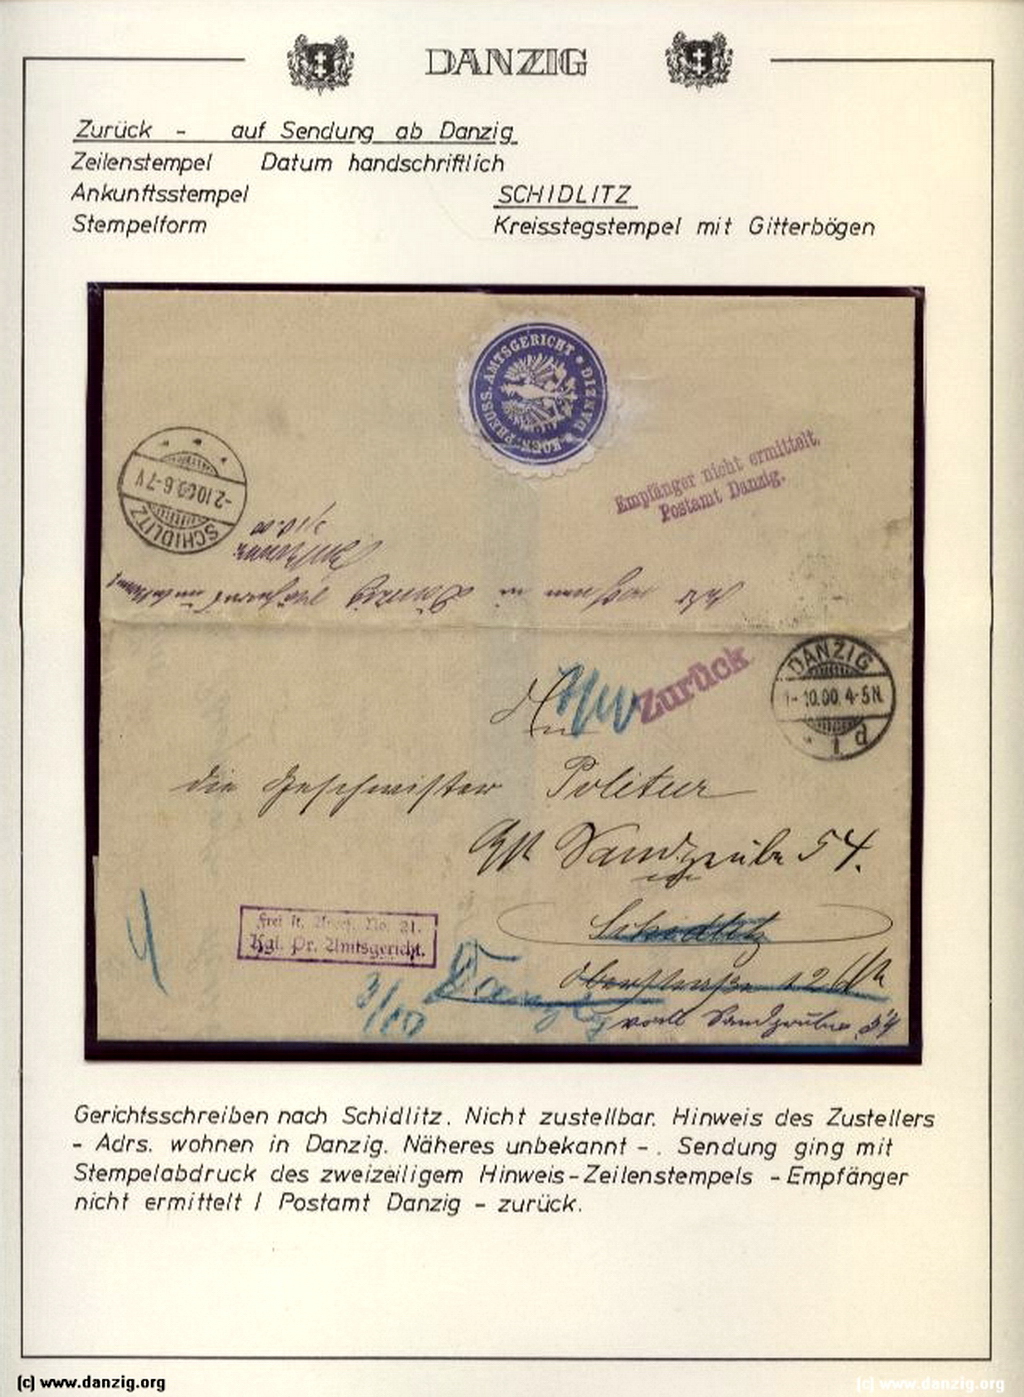 DANZIG
Zurück - auf Sendung ab Danzig
Zeilenstempel Datum handschriftlich
Ankunftsstempel SCHIDLITZ
Stempelform Kreisstegstempel mit Gitterbögen
KOEN. PREUSS. AMTSGERICHT * DANZIG *
Empfänger nicht ermittelt.
Postamt Danzig.
SCHIDLITZ
-2.10.00.6-7V
Adr. wohnen in Danzig Näheres unbekannt
DANZIG
1-10.00.4-5N.
* 1 d
Zurück
An
die Geschwister Politur
Sandgrube 54.
Schidlitz
Oberstraße
Danzig
Sandgrube 54
Frei lt. Avers. No. 21.
Kgl. Pr. Amtsgericht.
3/10
Gerichtsschreiben nach Schidlitz. Nicht zustellbar. Hinweis des Zustellers
- Adrs. wohnen in Danzig. Näheres unbekannt -. Sendung ging mit
Stempelabdruck des zweizeiligem Hinweis-Zeilenstempels - Empfänger
nicht ermittelt / Postamt Danzig - zurück.
(c) www.danzig.org
(c) www.danzig.org